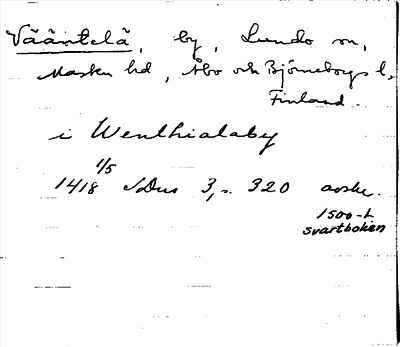 Vääntelä, by, Lundo sn,
Masku hd, Åbo och Björneborgs l,
Finland.
i Wenthialaby
1418 1/5 SDns 3, s. 320 avskr.
1500-t
svartboken